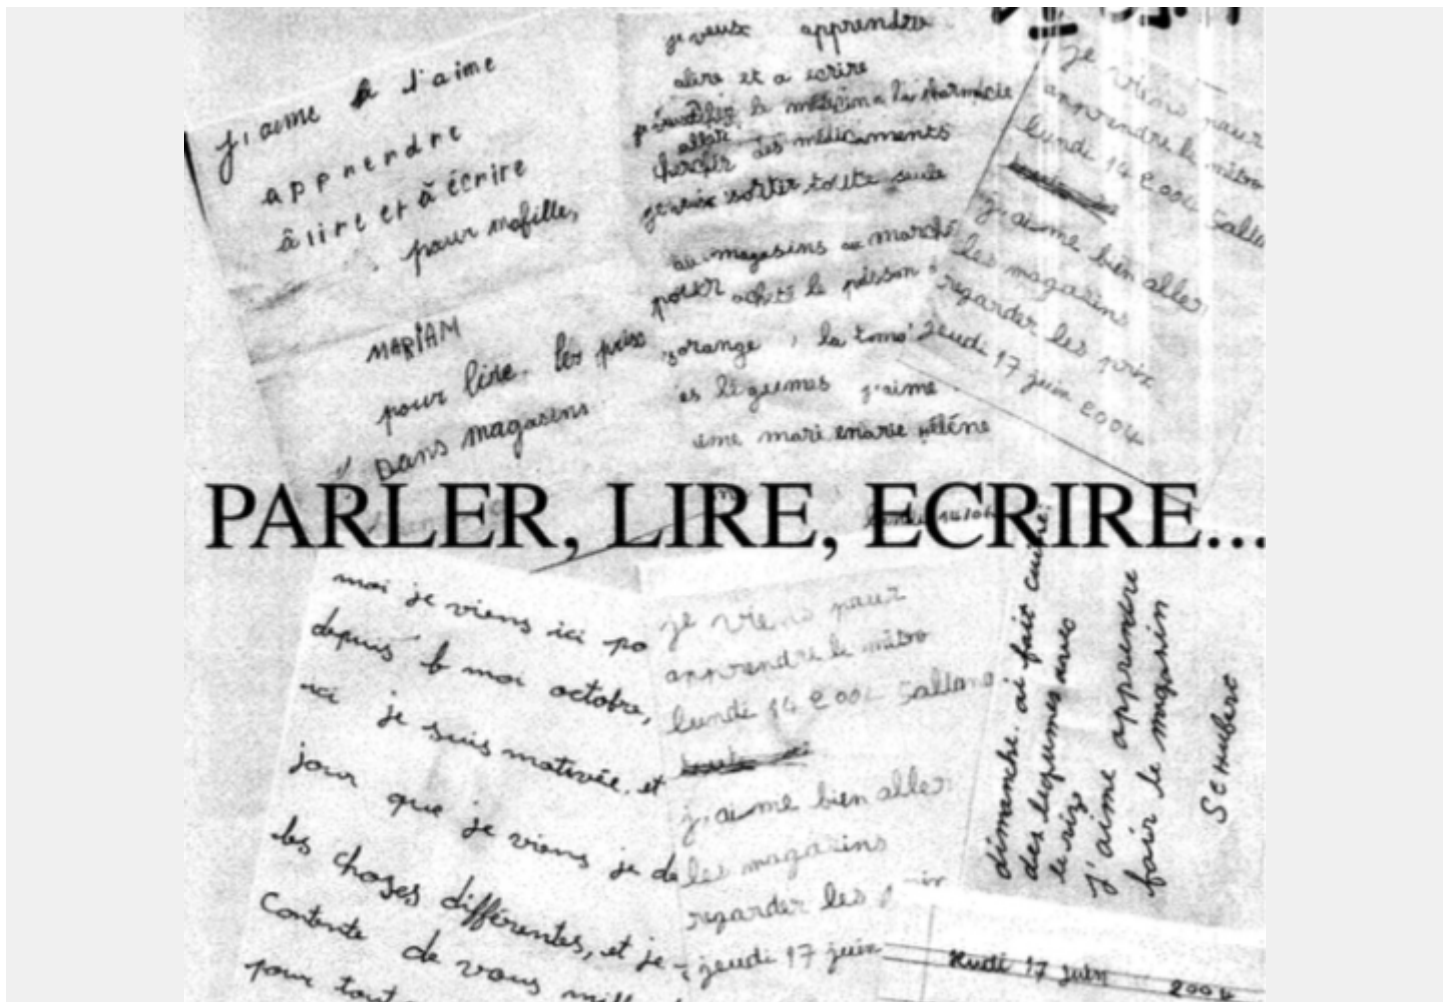 j'aime à l'aime
apprendre
â lire et â écrire
pour mafille,
MARIAM
pour lire les prix
Dans magasins
je veux apprendre
alire et a ecrire
le médecin a la pharmacie
cherche des médicaments
sortir toute seule
au magasins au marché
acheté le pésson
orange, la tomo
es légumes j'aime
ème mari enarie hélène
je viens paur
apprendre le métro
lundi 14 2004
j'aime bien aller
les magazins
regarder les prix
Jeudi 17 juin 2004
PARLER, LIRE, ECRIRE...
lundi 14/06
moi je viens ici po
depuis le moi octobre,
ici je suis motivée. et
jour que je viens je de
les choses différentes, et je
contente de vous
pour tout
je viens paur
apprendre le métro
lundi 14 2004
j'aime bien aller
les magazins
regarder les
jeudi 17 juin
dimanche. ai fait cuire
des legumes avec
le riz
j'aime apprendre
fair le magasin
Jeudi 17 juin 2004